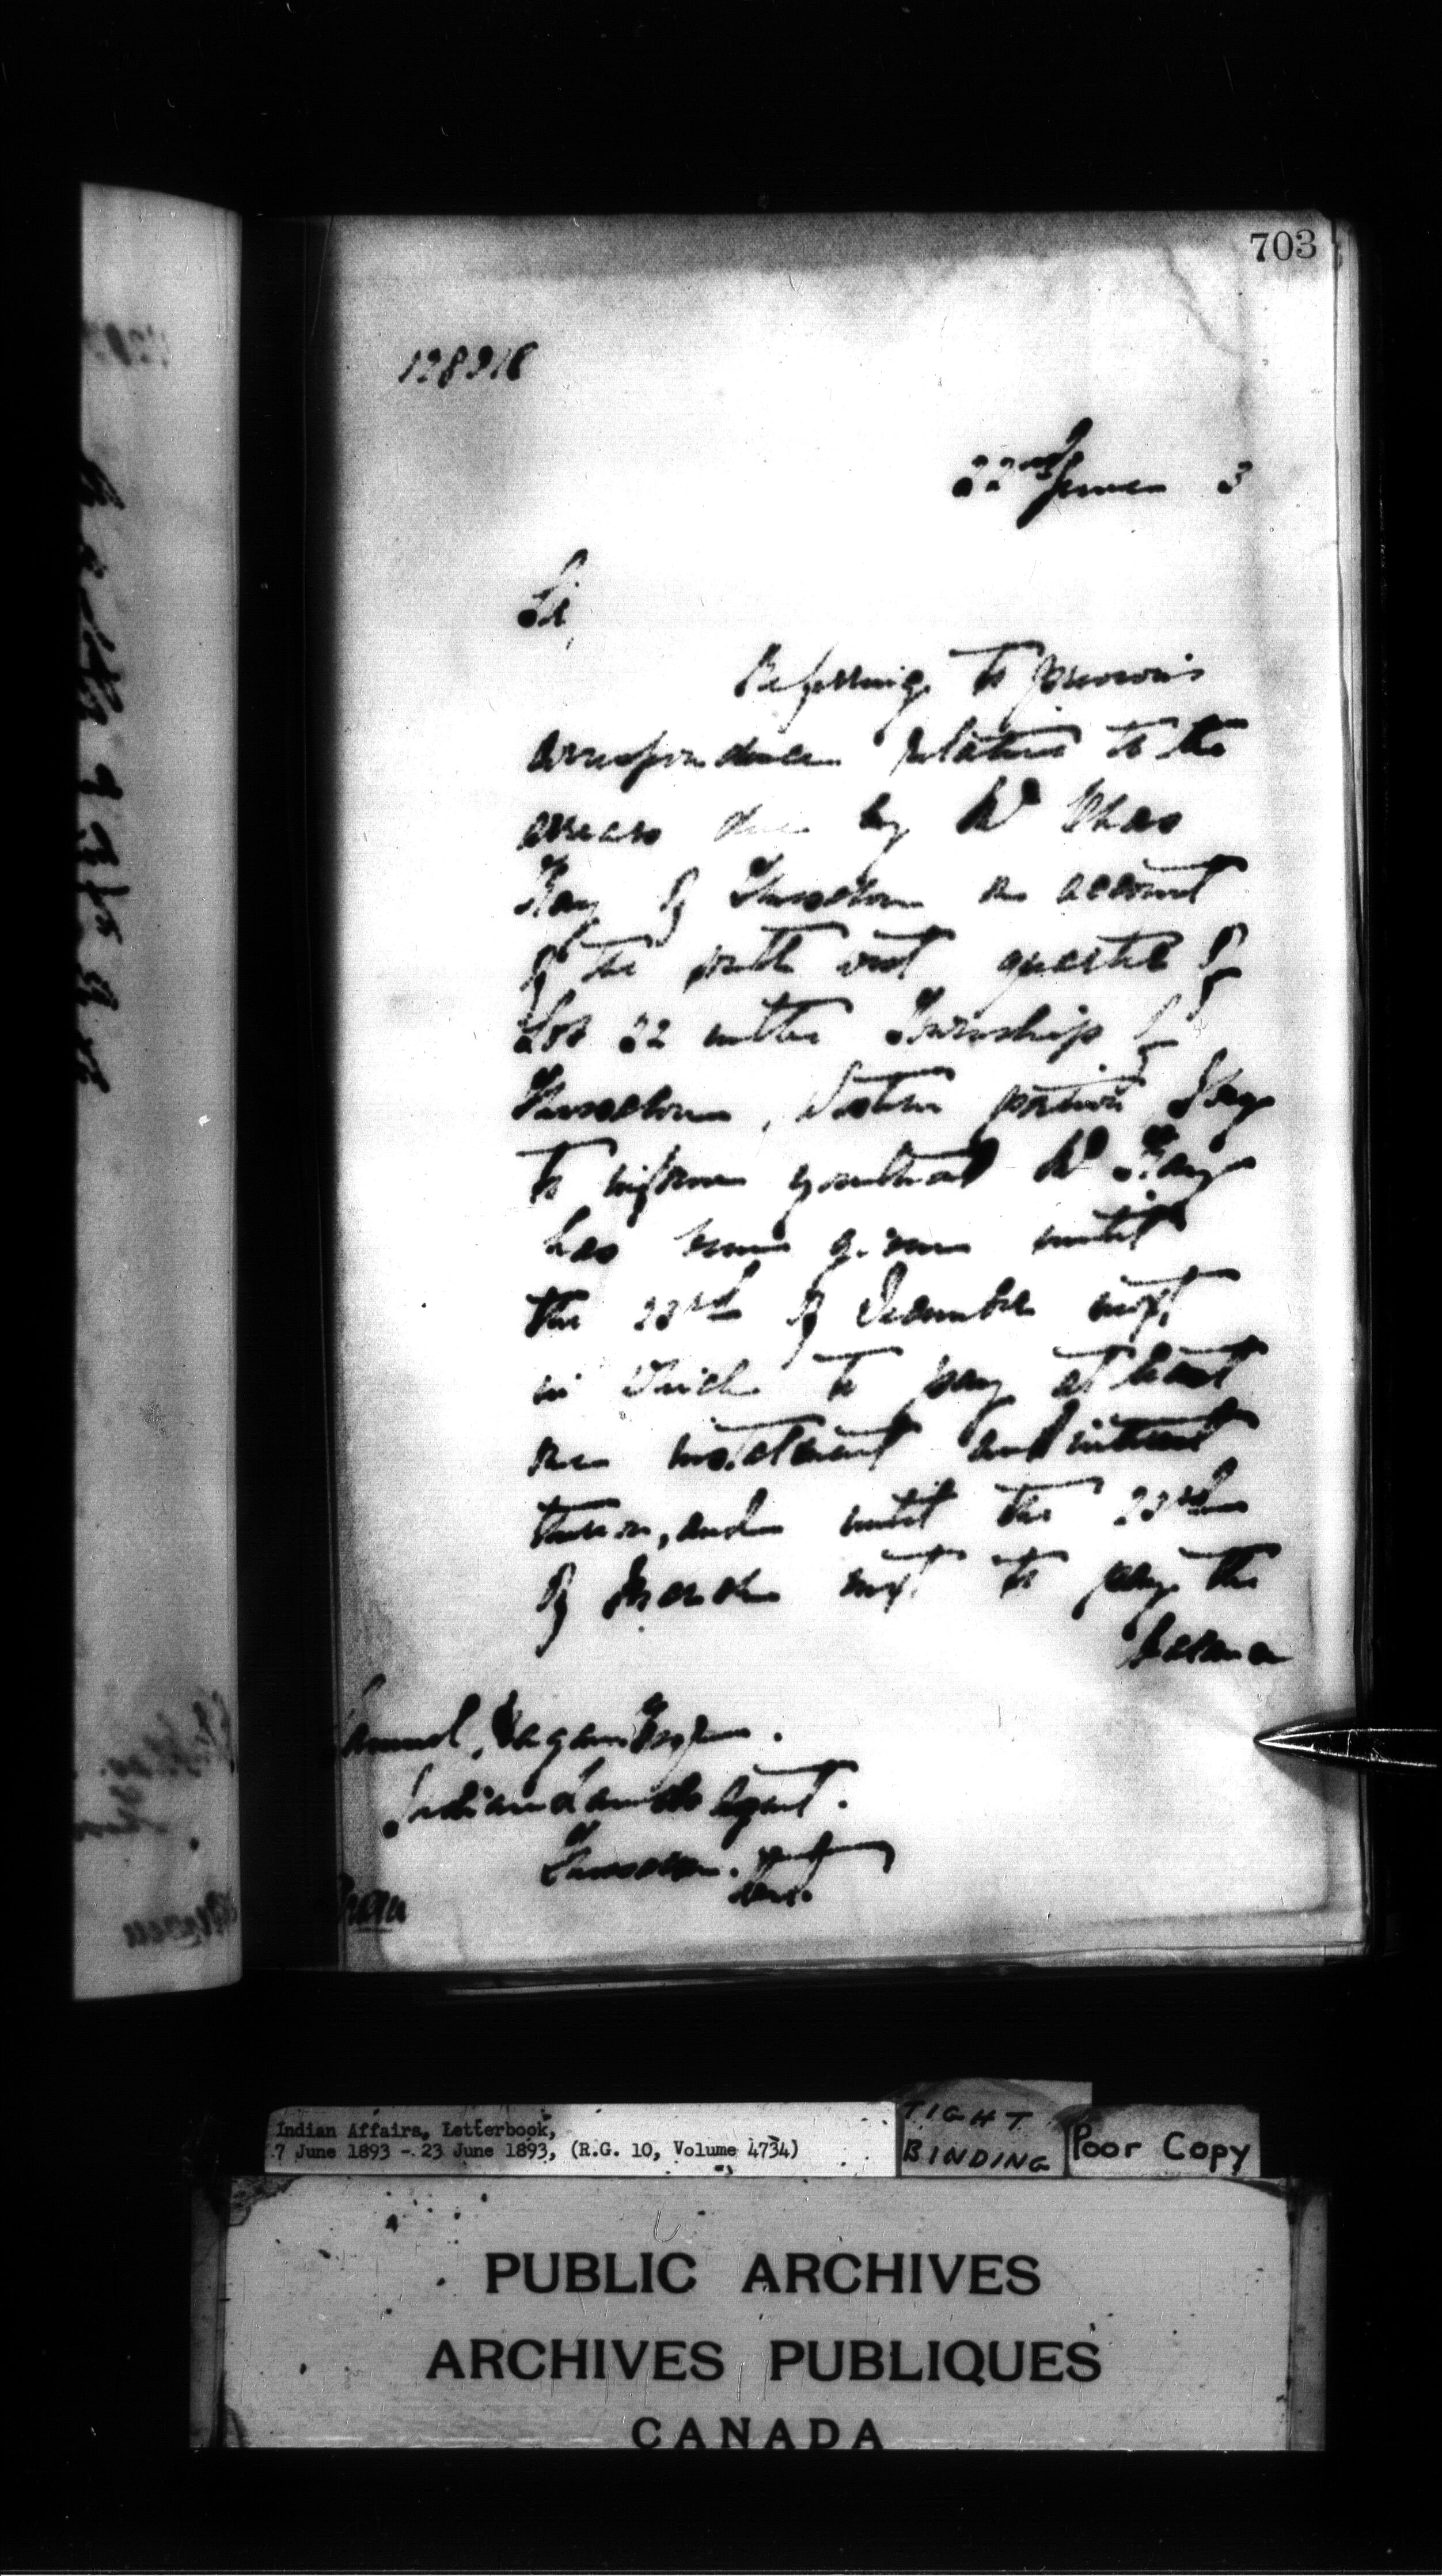 703
128916
22nd June 3
Sir,
Referring to previous
correspondence relative to the
arrears due by Mr Chas
of Thessalon on account
of the south west quarter of
Lot 22 in the Township of
Thessalon, portion I beg
to inform you that Mr
has been given until
the 23rd of December next,
in which to pay at least
one instalment and interest
thereon, and until the 23rd
of March next to pay the
balance
Samuel Hagan Esq
Indian Lands Agent.
Thessalon. Ont
TIGHT
BINDING
Poor Copy
Indian Affairs, Letterbook,
7 June 1893 - 23 June 1893, (R.G. 10, Volume 4734)
PUBLIC ARCHIVES
ARCHIVES PUBLIQUES
CANADA